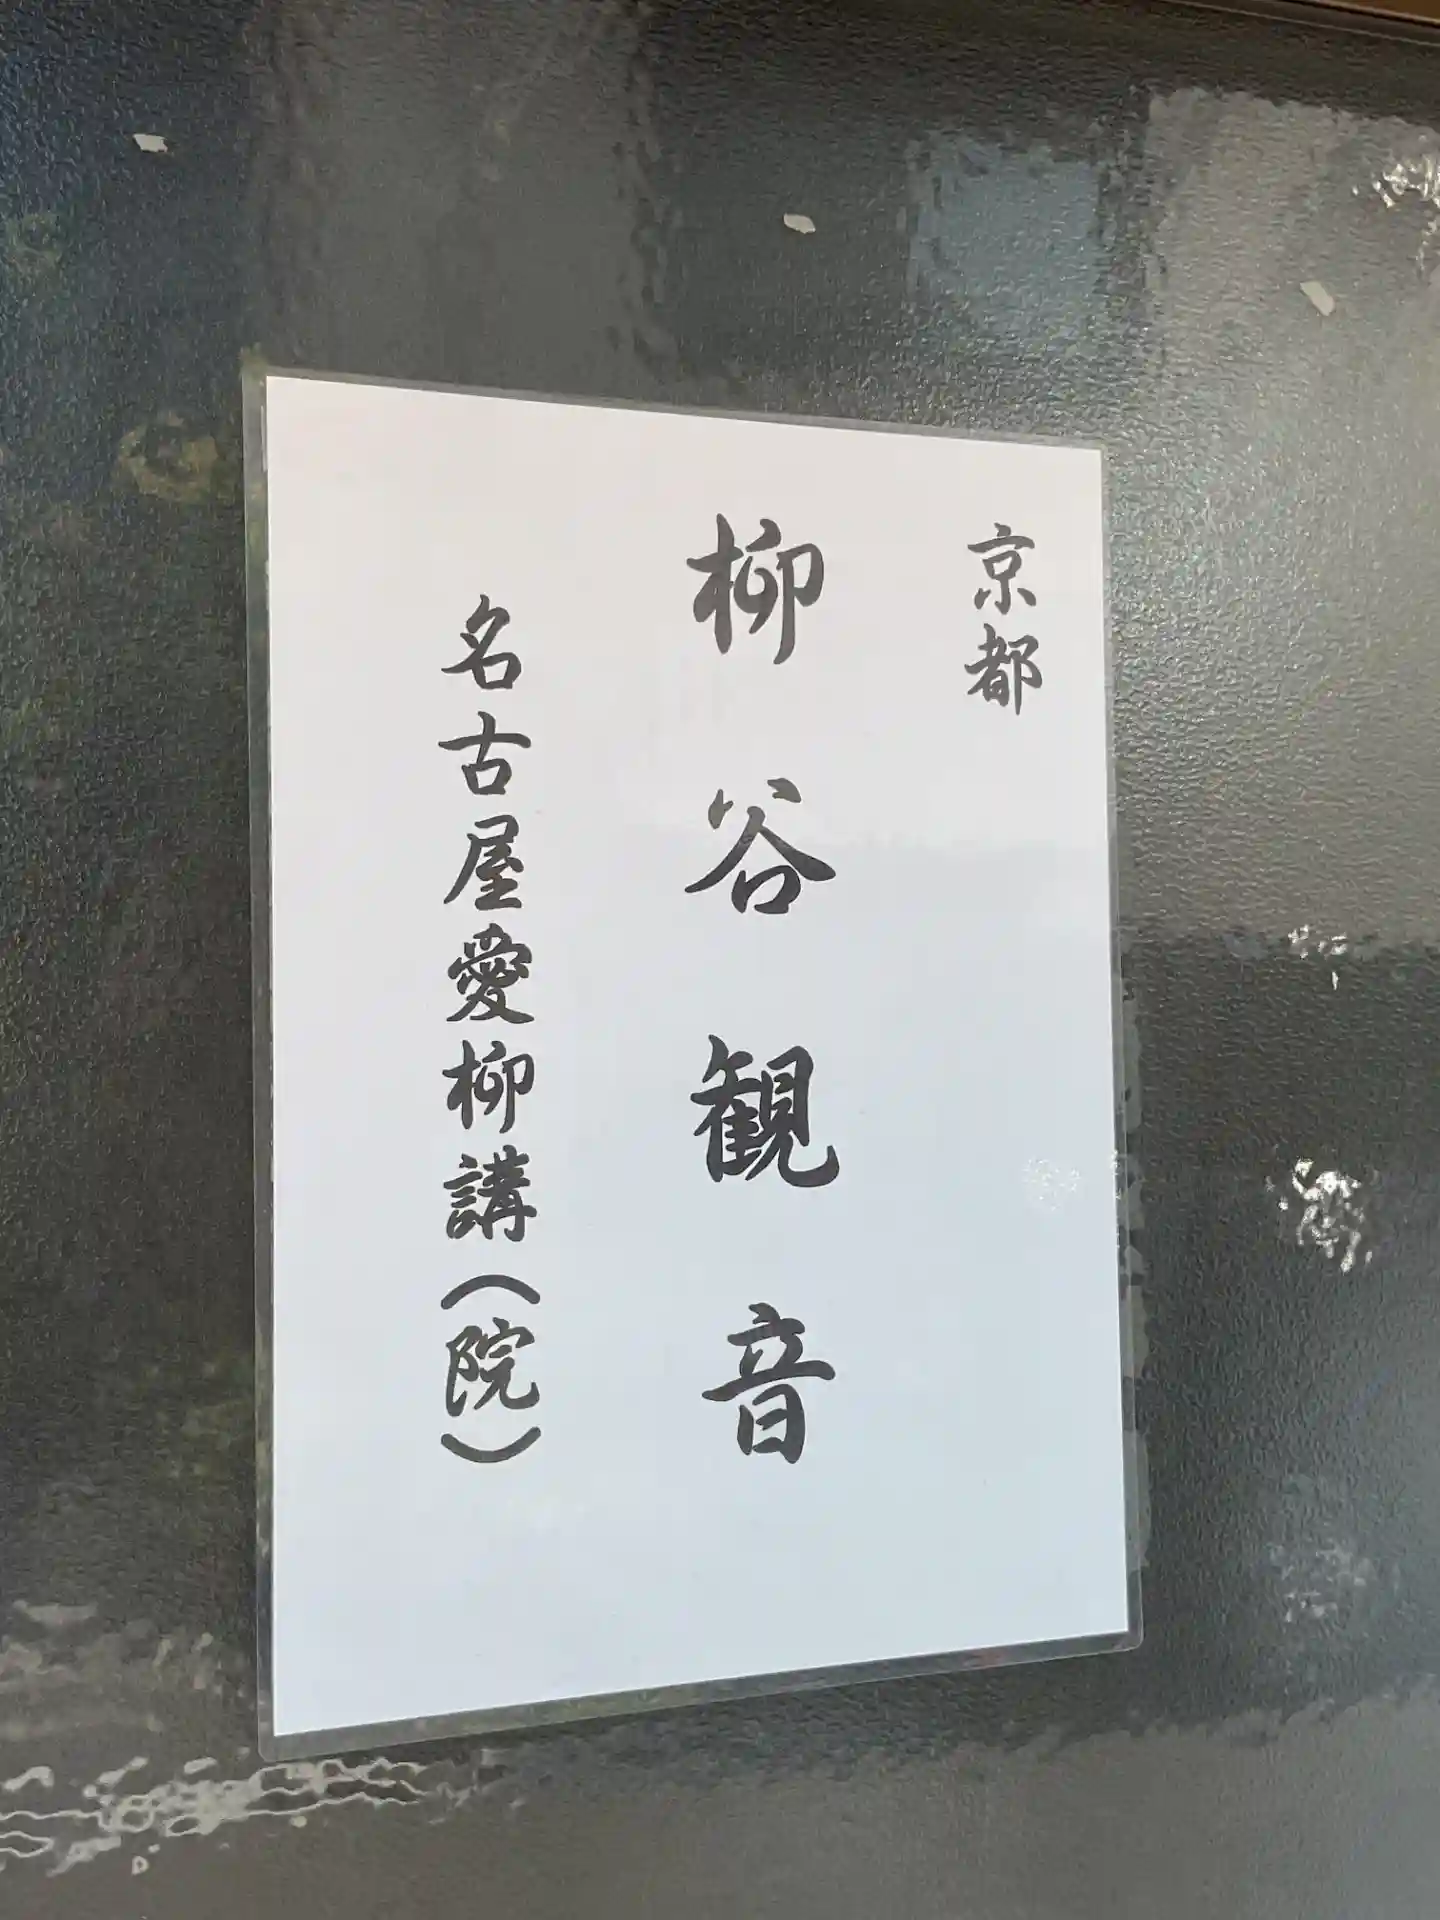 京都
柳谷観音
名古屋愛柳講(院)